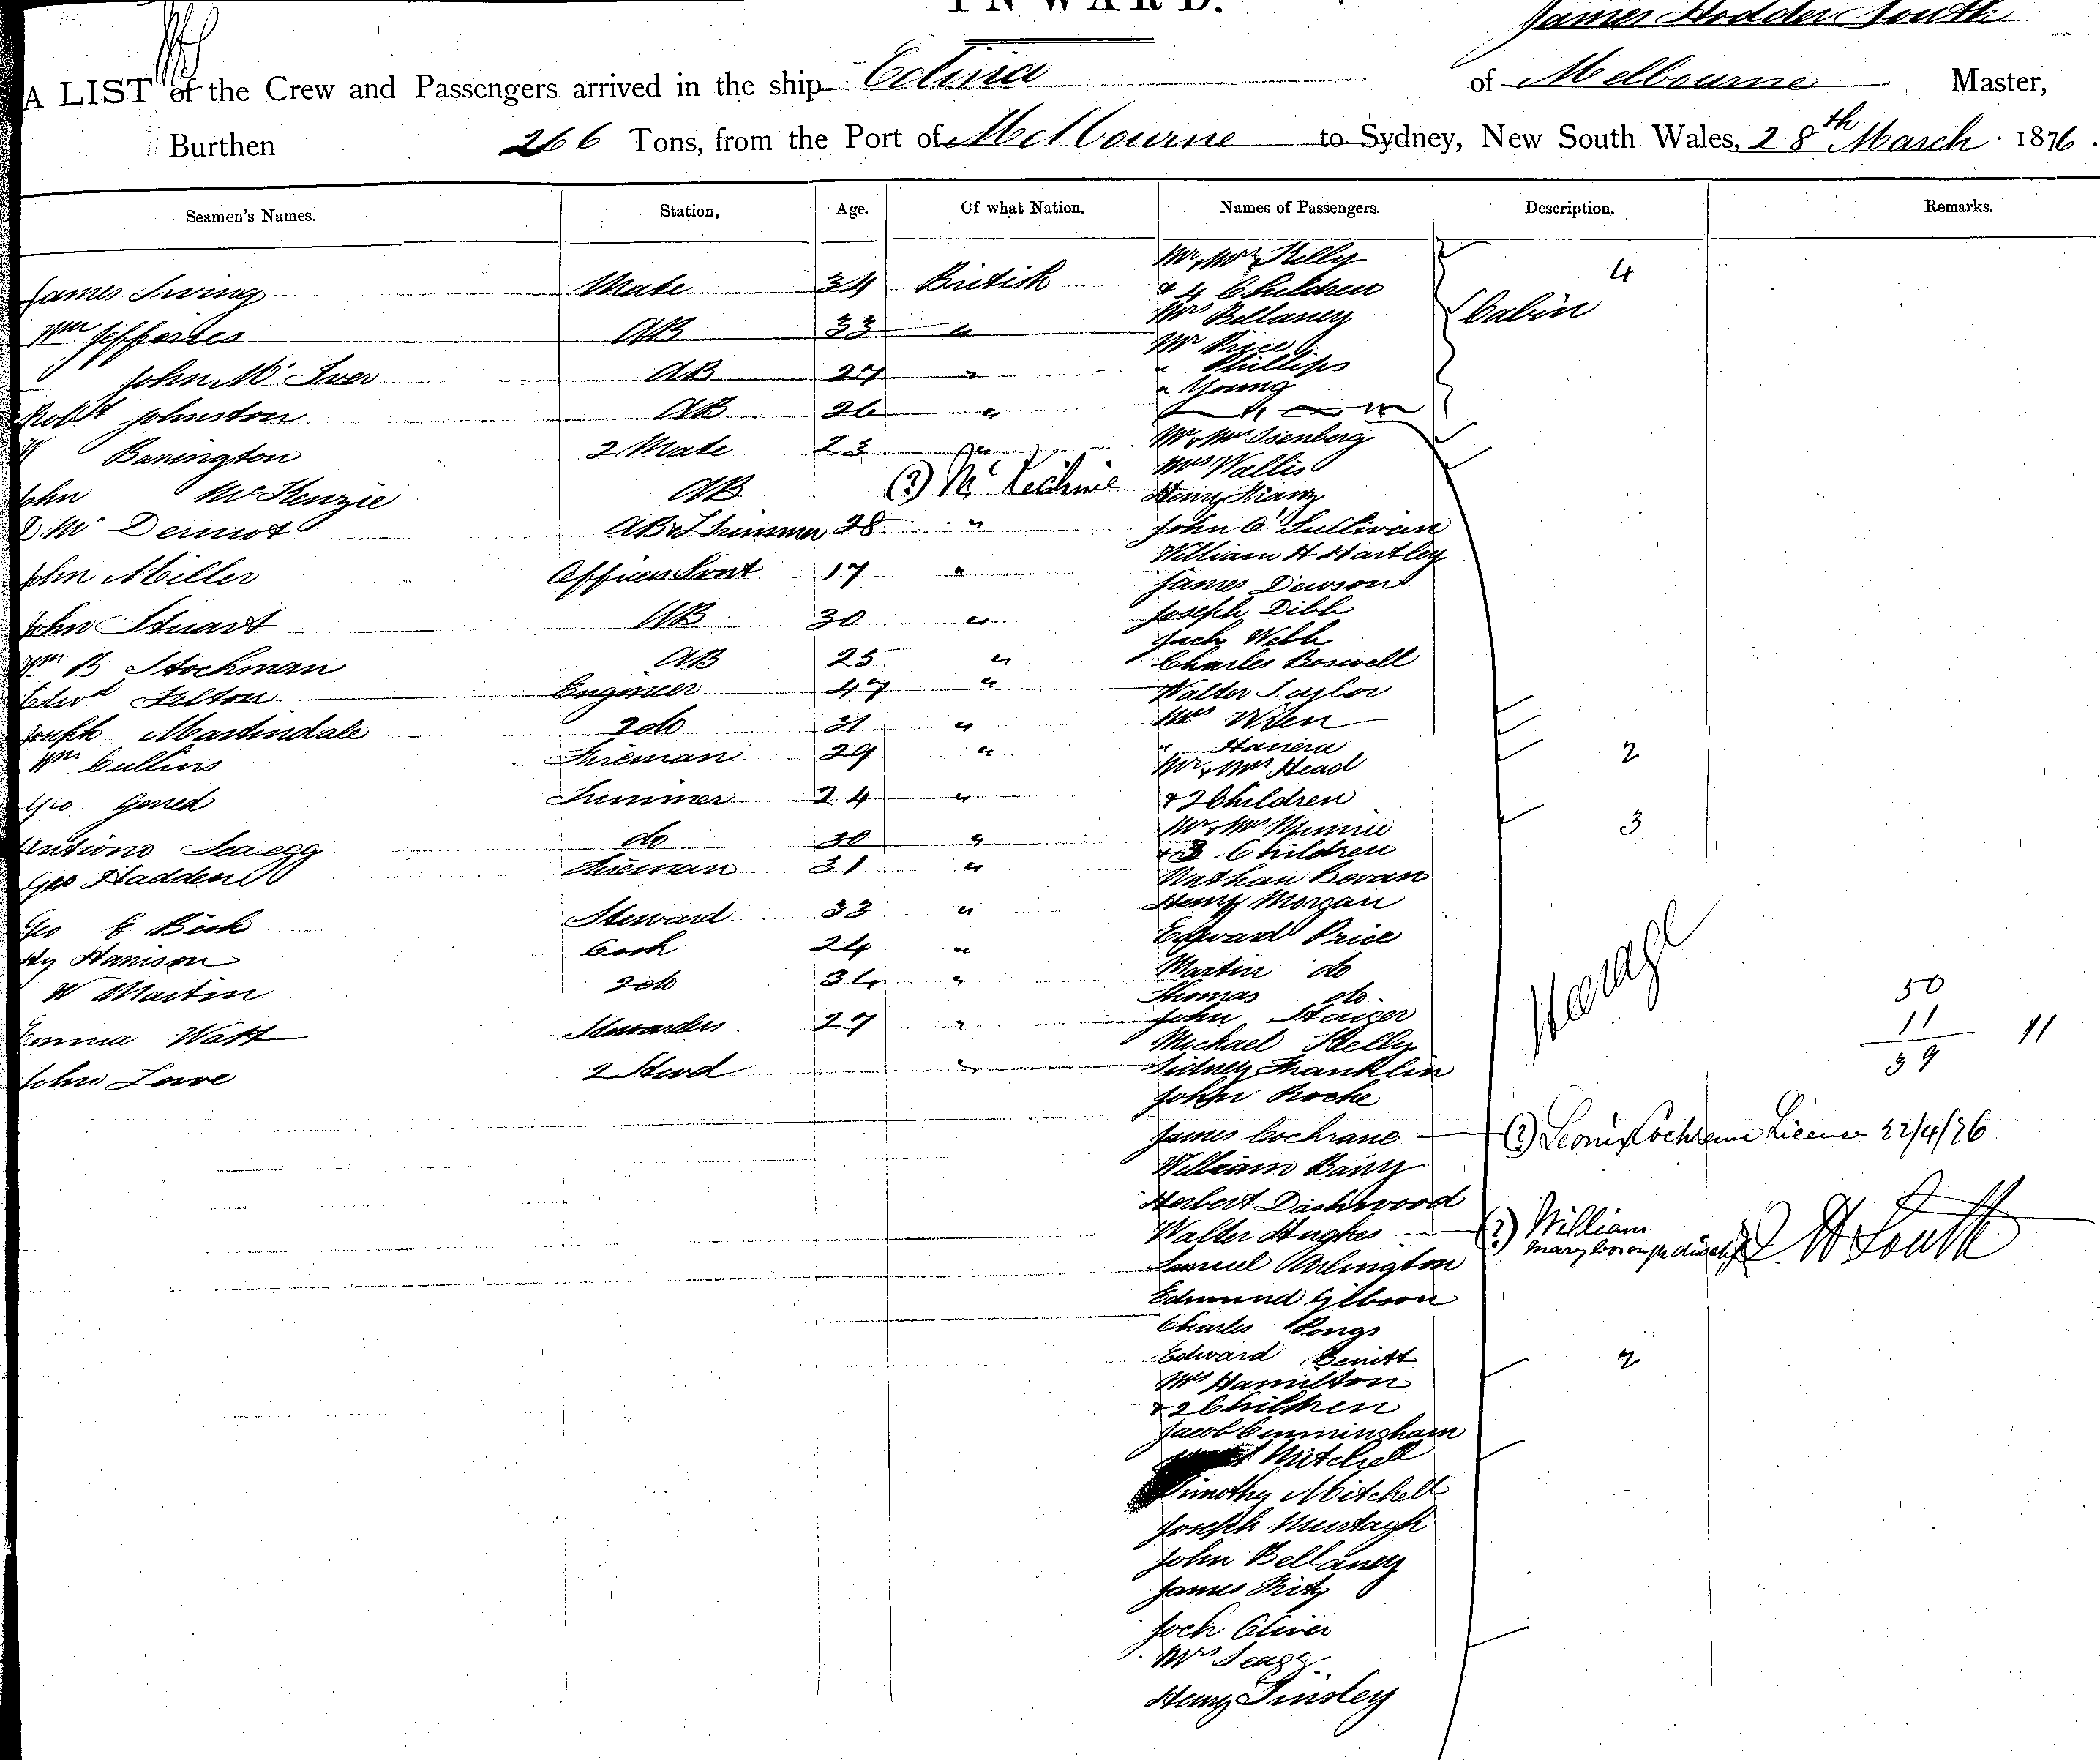 INWARD.
James Hodder South
A LIST of the Crew and Passengers arrived in the ship Edina of Melbourne Master,
Burthen 266 Tons, from the Port of Melbourne to Sydney, New South Wales, 28th March 1876.
Seamen's Names. Station, Age. Of what Nation. Names of Passengers. Description. Remarks.
Mr & Mrs Kelly
James Irving Mate 34 British & 4 Children 4
Mrs Bellaney Cabin
Wm Jefferies AB 33 " Mr Price
John McIver AB 27 " " Phillips
" Young
Robt Johnston AB 26 "
Mr & Mrs Isenberg
Barrington 2 Mate 23 "
Mrs Wallis
John McKenzie AB (?) McKechnie Henry
D. McDermot AB & Trimmer 28 " John O'Sullivan
William H Hartley
John Miller Officers Servt 17 " James Dewson
Joseph Dibb
John Stuart AB 30 " Webb
Wm B Stockman AB 25 " Charles Boswell
Edwd Felton Engineer 47 " Walter Taylor
Joseph Martindale 2 do 31 " Mrs Wilen
"
Wm Cullins Fireman 29 " Mr & Mrs Head 2
Geo Trimmer 24 " & 2 Children
Mr & Mrs 3
do 30 " & 3 Children
Geo Hadden Fireman 31 " Nathan Bevan
Henry Morgan
Geo Steward 33 "
Edward Price
Hy Harrison Cook 24 "
Martin do
W Martin 2 do 34 " Thomas do 50
John
Emma Watt Stewardess 27 " Michael Kelly 11 11
John Lowe 2 Stwd " Sidney Franklin 39
John Roche
James Cochrane (?) Cochrane 22/4/76
William Barry
Herbert Dashwood
Walter Hughes (?) William
Samuel Arlington (?) J. H South
Edmund Gibson
Charles
Edward
Mrs Hamilton 2
& 2 Children
Jacob Cunningham
Mitchell
Timothy Mitchell
Joseph Murtagh
John Bellaney
James
Oliver
Mrs
Henry Tinsley
Steerage